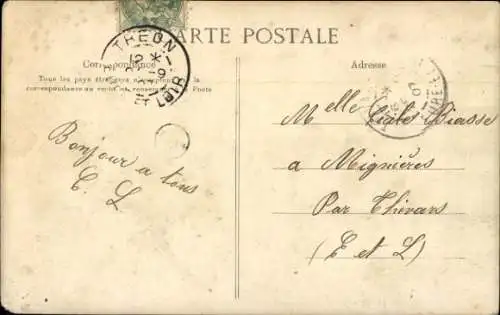 CARTE POSTALE
Correspondance
Tous les pays étrangers n'acceptent pas la
correspondance au verso se renseigner à la Poste
TREON
EURE-ET-LOIR
Bonjour a tous
E. L
Adresse
Melle Biasse
a Mignières
Par Thivars
(E et L)